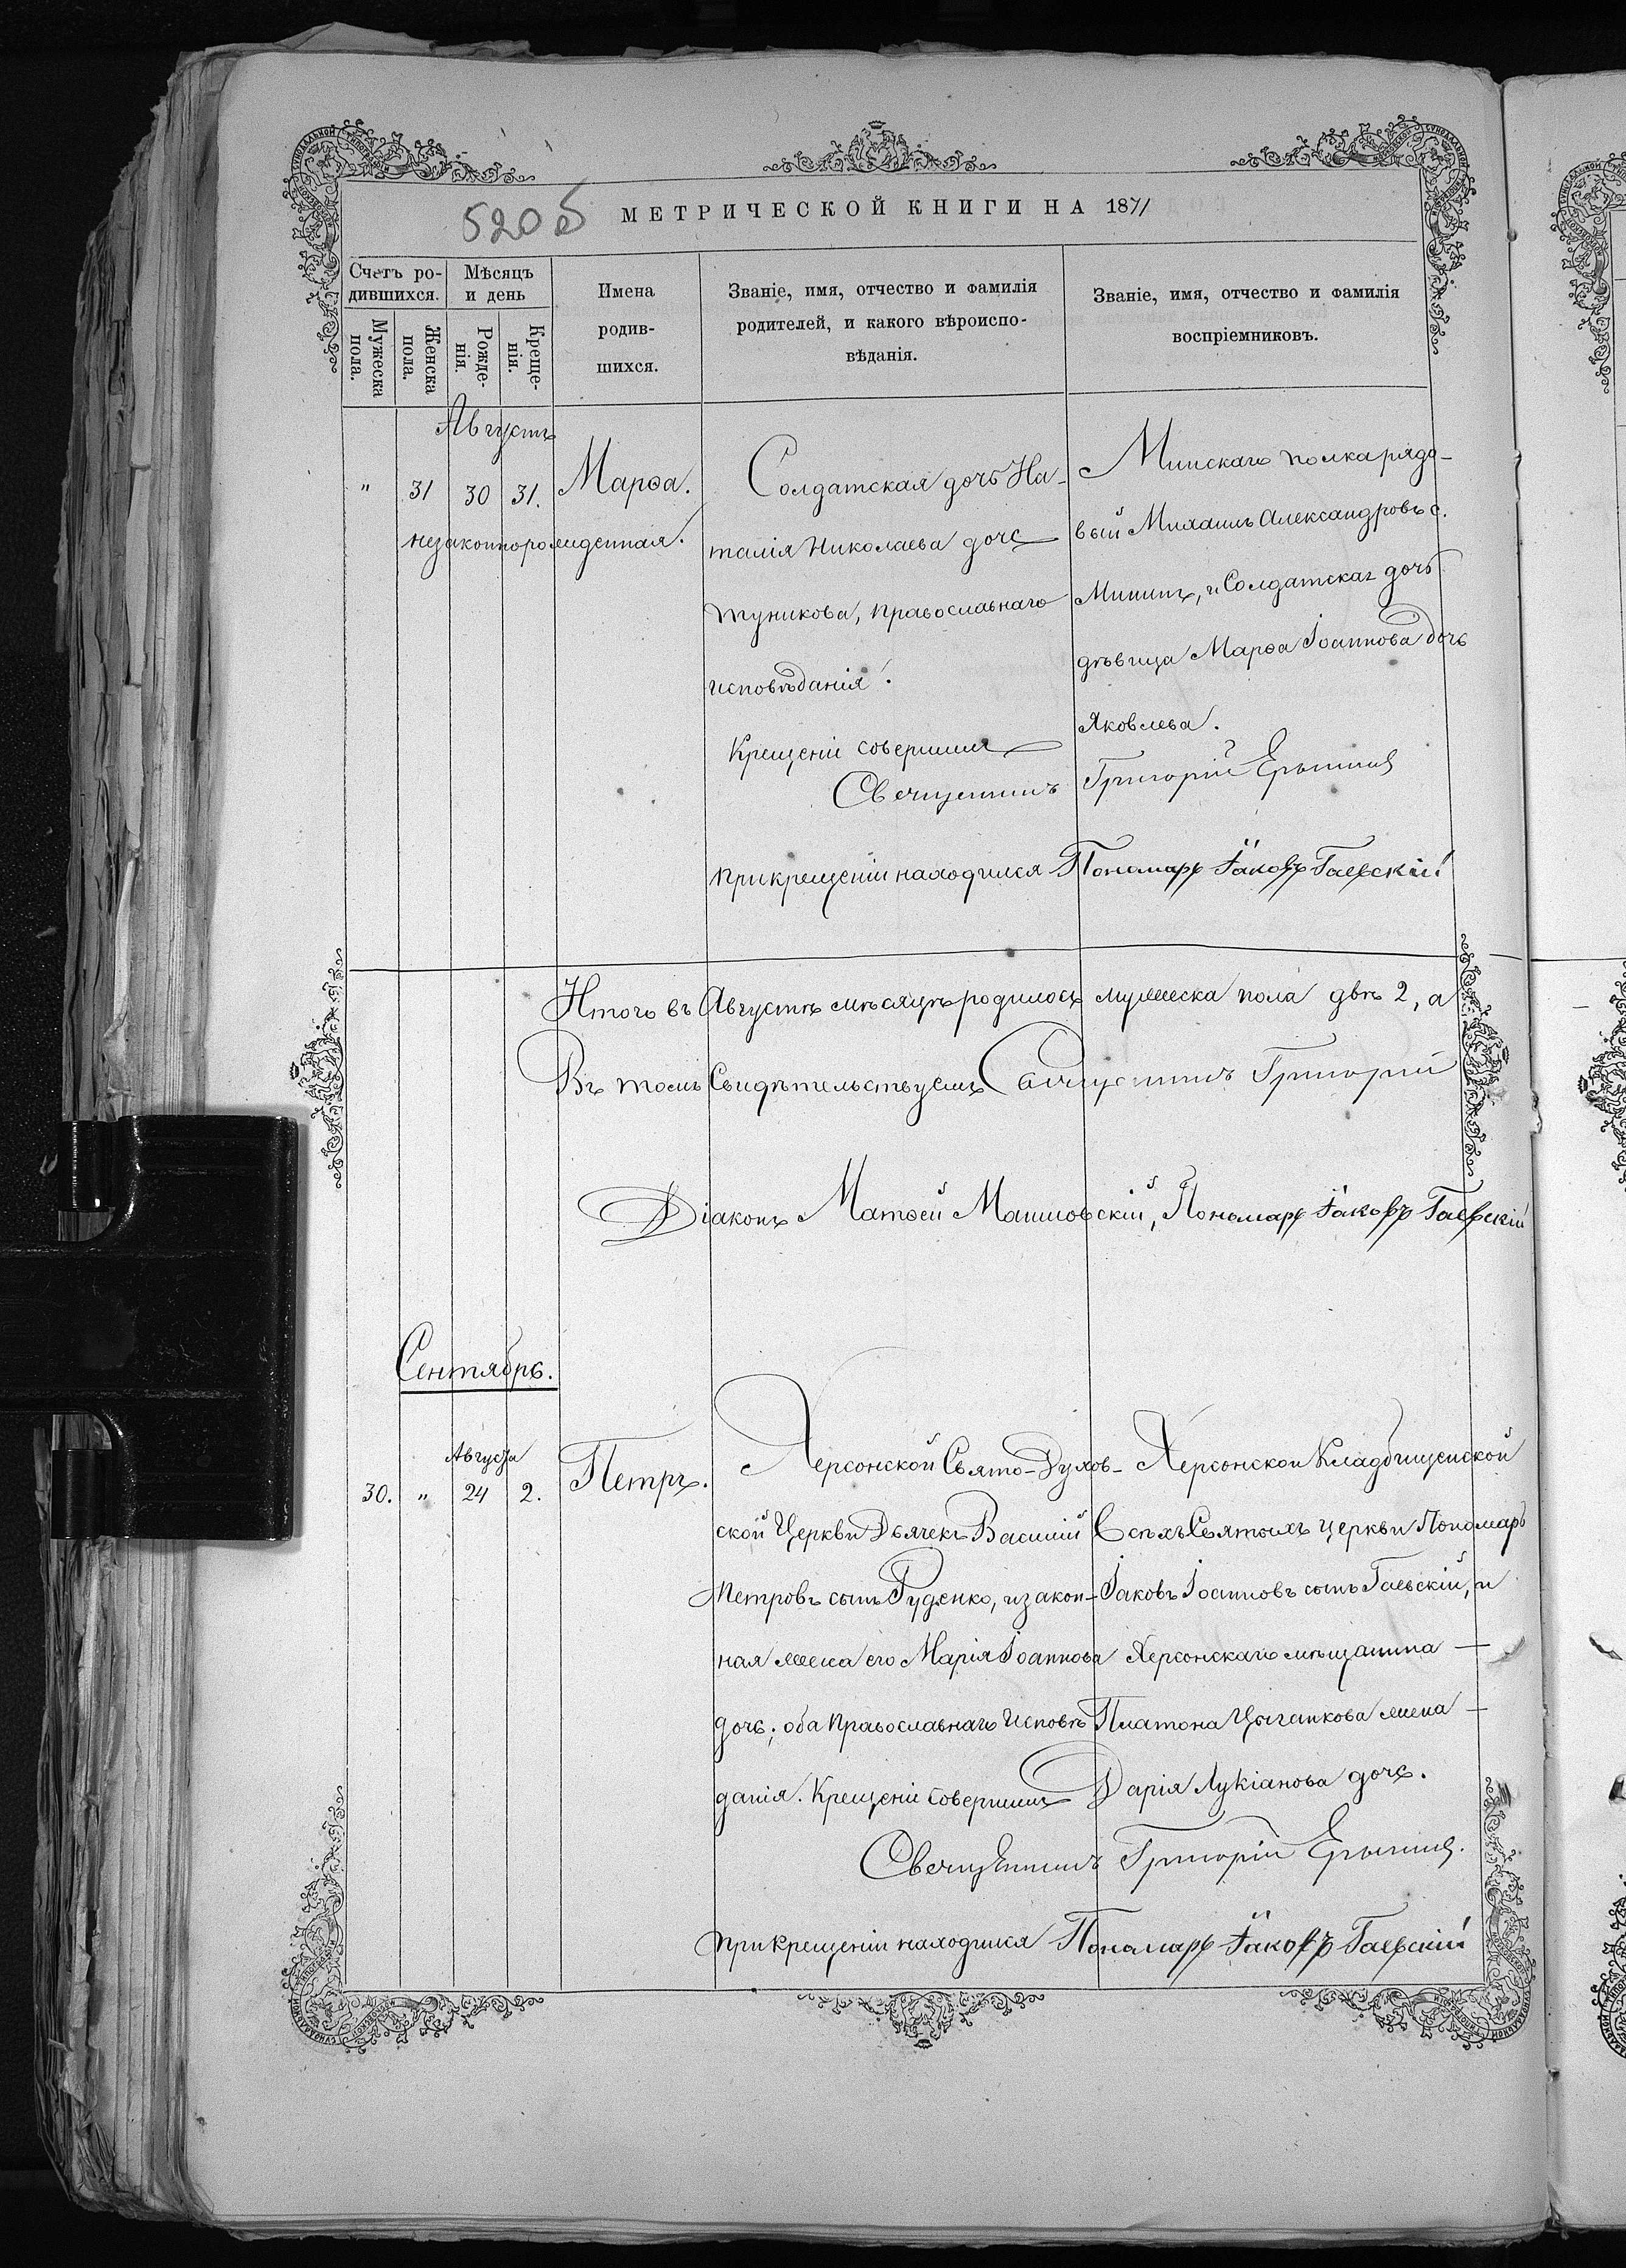 520б
МЕТРИЧЕСКОЙ КНИГИ НА 1871
Счетъ ро-
дившихся.
Мужеска
пола.
Женска
пола.
Мѣсяцъ
и день
Рожде-
нія.
Креще-
нія.
Имена
родив-
шихся.
Званіе, имя, отчество и фамилія
родителей, и какого вѣроиспо-
вѣданія.
Званіе, имя, отчество и фамилія
воспріемниковъ.
Августъ
" 31 30 31. Марѳа.
незаконнорожденная.
Солдатская дочь На-
талія Николаева дочь
туникова, православнаго
исповѣданія.
Крещеніе совершилъ
Минскаго полка рядо-
вый Михаилъ Александровъ с.
Мининъ, и Солдатская дочь
дѣвица Марѳа Іоаннова дочь
Яковлева.
Священникъ Григорій
При крещеніи находился Пономарь Іаковъ Гаевскій
Итого въ Августѣ мѣсяцѣ родилось мужеска пола двѣ 2, а
Въ томъ Свидѣтельствуемъ Священникъ Григорій
Діаконъ Матѳей Пономарь Іаковъ Гаевскій
Сентябрь.
Августа
30. " 24 2. Петръ.
Херсонской Свято-Духов-
ской Церкви Дьячекъ Василій
Петровъ сынъ Руденко, и закон-
ная жена его Марія Іоаннова
дочь; оба Православнаго Исповѣ
данія. Крещеніе совершилъ
Херсонской Кладбищенской
Всѣхъ Святыхъ церкви Пономарь
Іаковъ Іоанновъ сынъ Гаевскій, и
Херсонскаго мѣщанина
Платона Цыганкова жена
Дарія Лукіанова дочь.
Священникъ Григорій
При крещеніи находился Пономарь Іаковъ Гаевскій